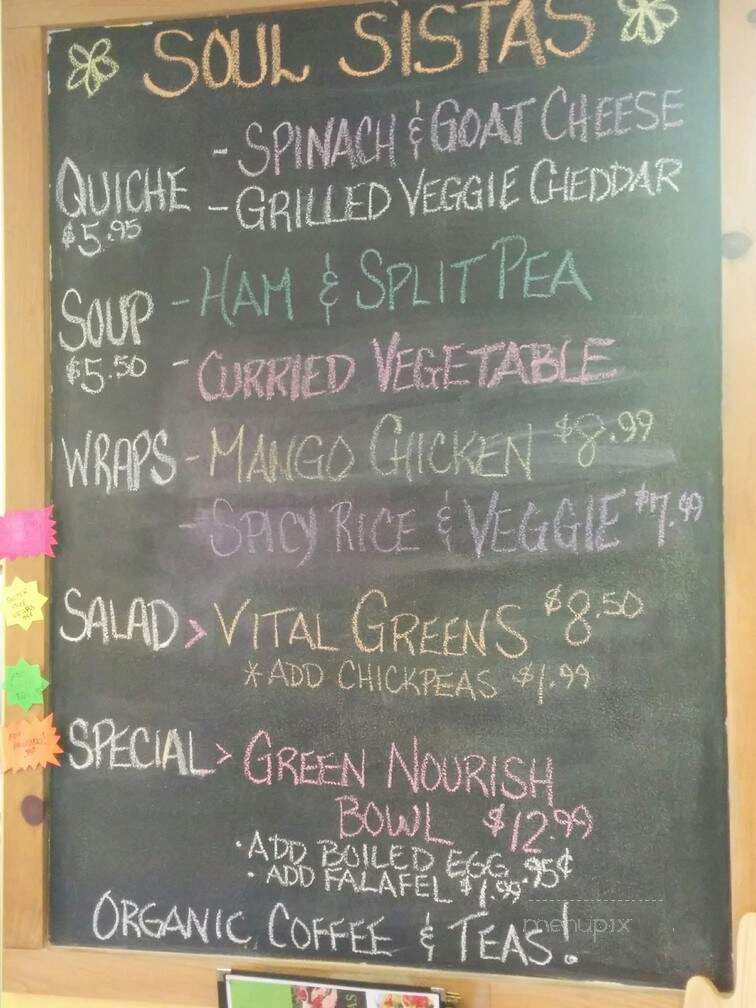 SOUL SISTAS
QUICHE - SPINACH & GOAT CHEESE
$5.95 - GRILLED VEGGIE CHEDDAR
SOUP - HAM & SPLIT PEA
$5.50 - CURRIED VEGETABLE
WRAPS - MANGO CHICKEN $8.99
- SPICY RICE & VEGGIE $7.99
SALAD > VITAL GREENS $8.50
* ADD CHICKPEAS $1.99
SPECIAL > GREEN NOURISH
BOWL $12.99
• ADD BOILED EGG .95¢
• ADD FALAFEL $1.99
ORGANIC COFFEE & TEAS!
menupix